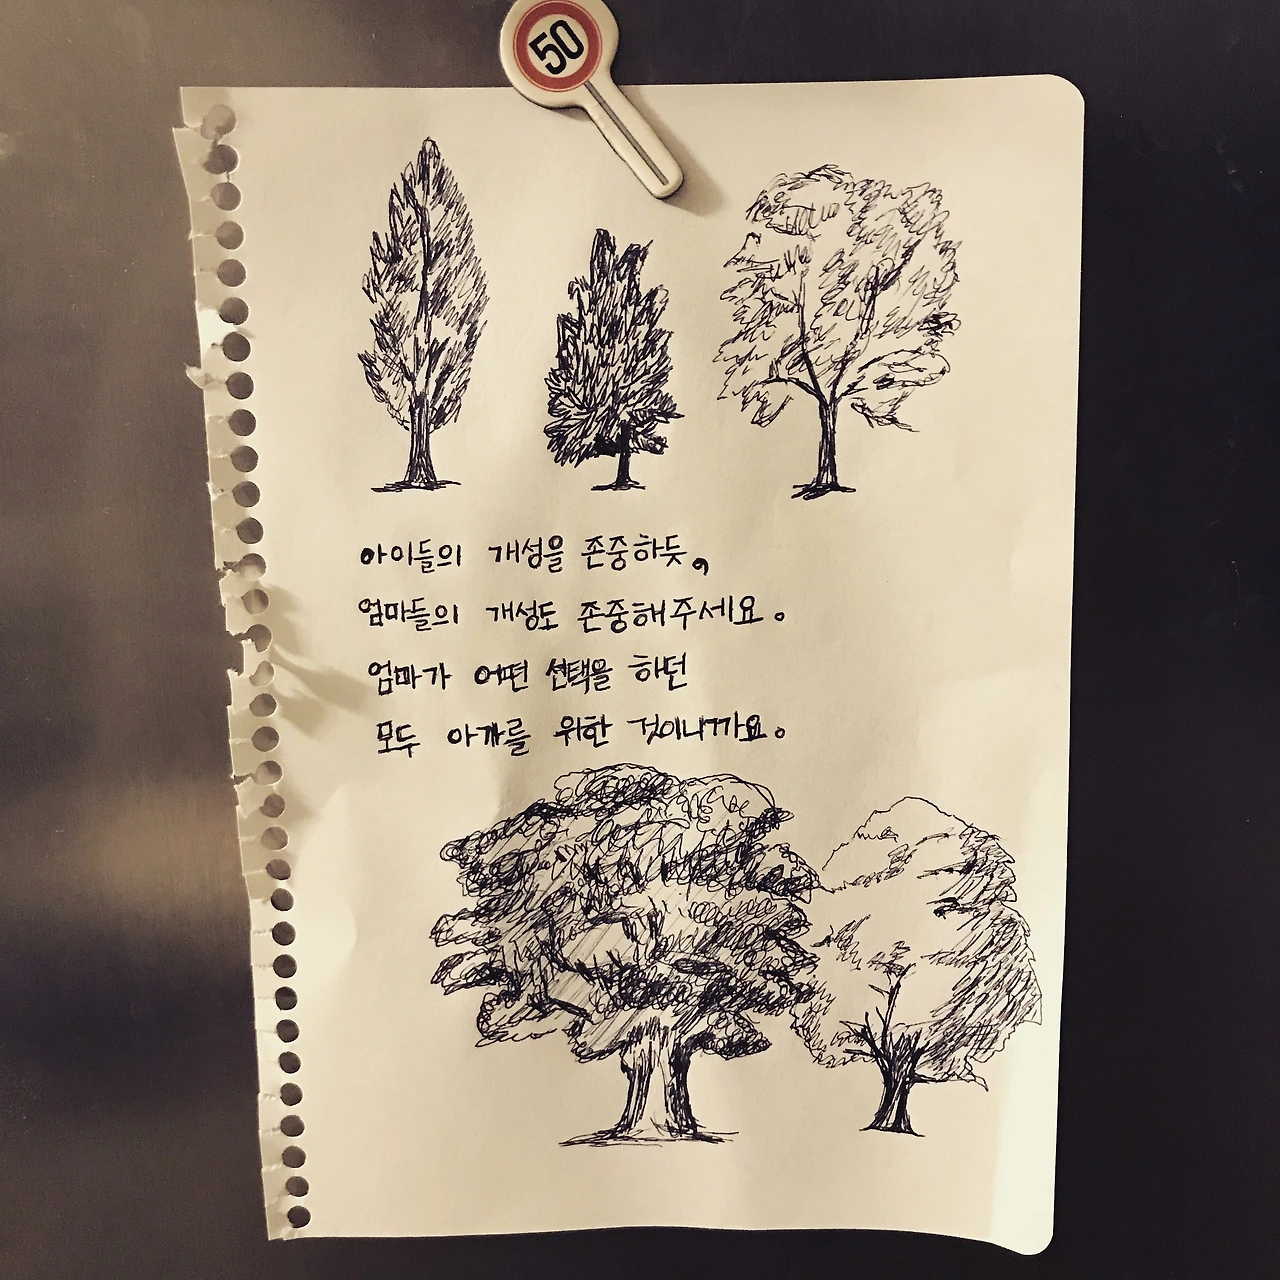 50
아이들의 개성을 존중하듯,
엄마들의 개성도 존중해주세요.
엄마가 어떤 선택을 하던
모두 아가를 위한 것이니까요.